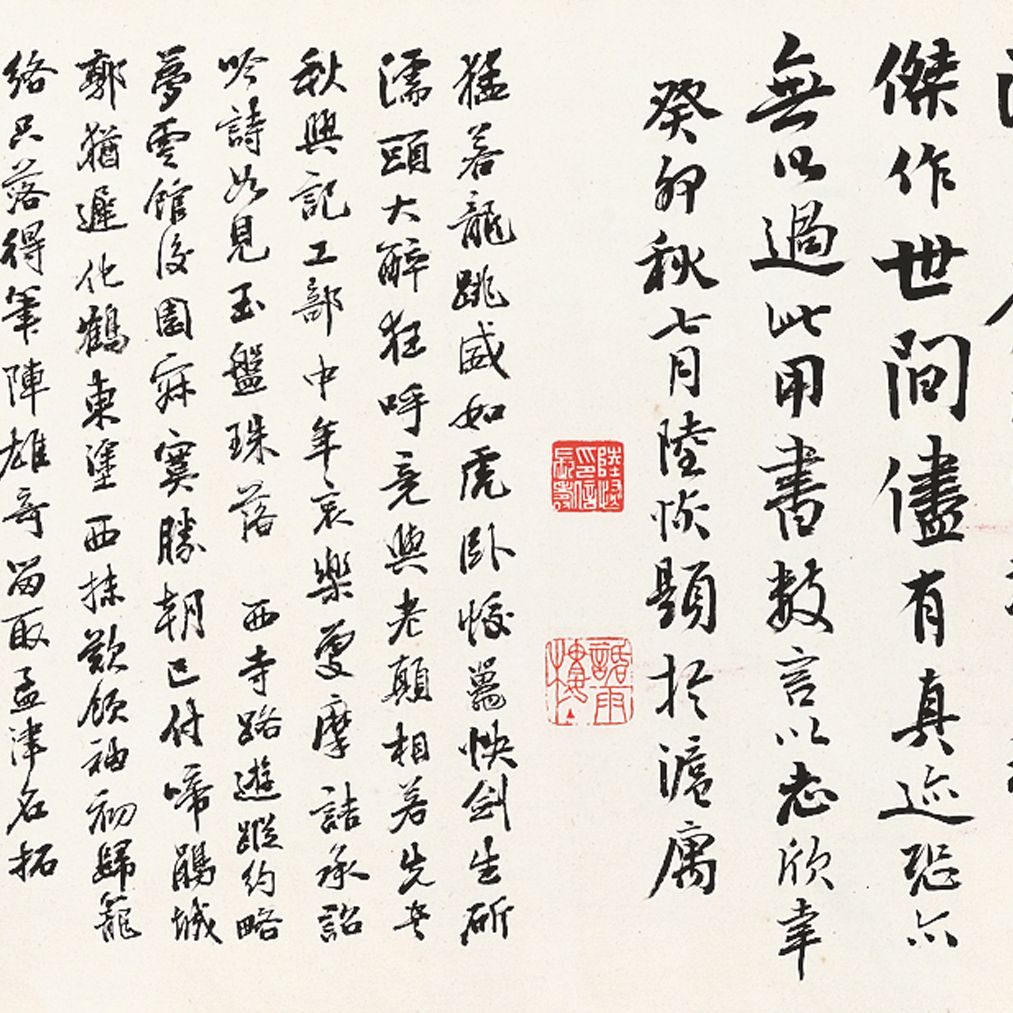 傑作世間儘有真迹恐亦
無以過此用書數言以志欣幸
癸卯秋七月陸恢題於滬寓
陸恢印信長壽
猛若龍跳威如虎卧恢蜀快劍生斫
濡頭大醉狂呼竟與老顛相若先生
秋興記工部中年哀樂摩詰承詔
吟詩如見玉盤珠落 西寺路遊蹤約略
夢雲館後園寂寞勝朝已付啼鵑城
郭猶遲化鶴東塗西抹歎領袖初歸籠
絡只落得筆陣雄奇留取孟津名拓